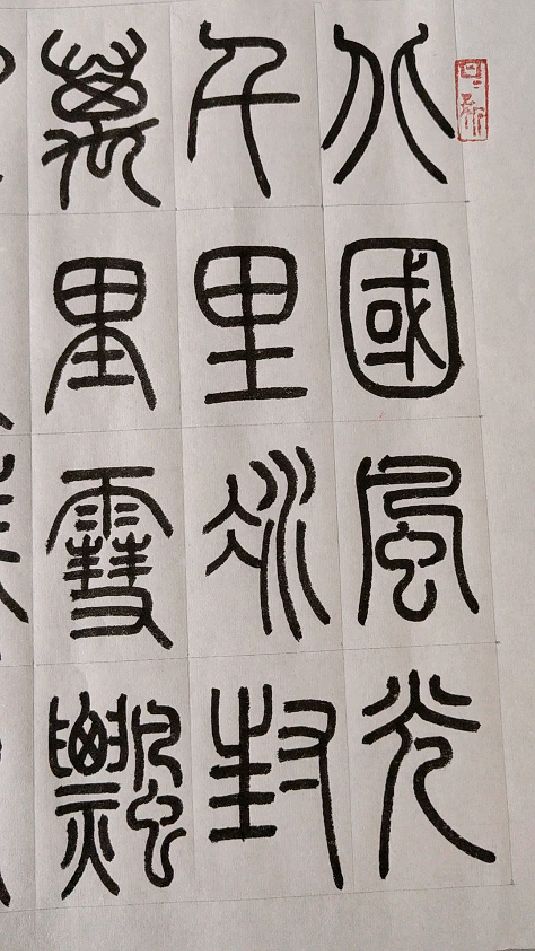 日〻新
北國風光
千里冰封
萬里雪飄